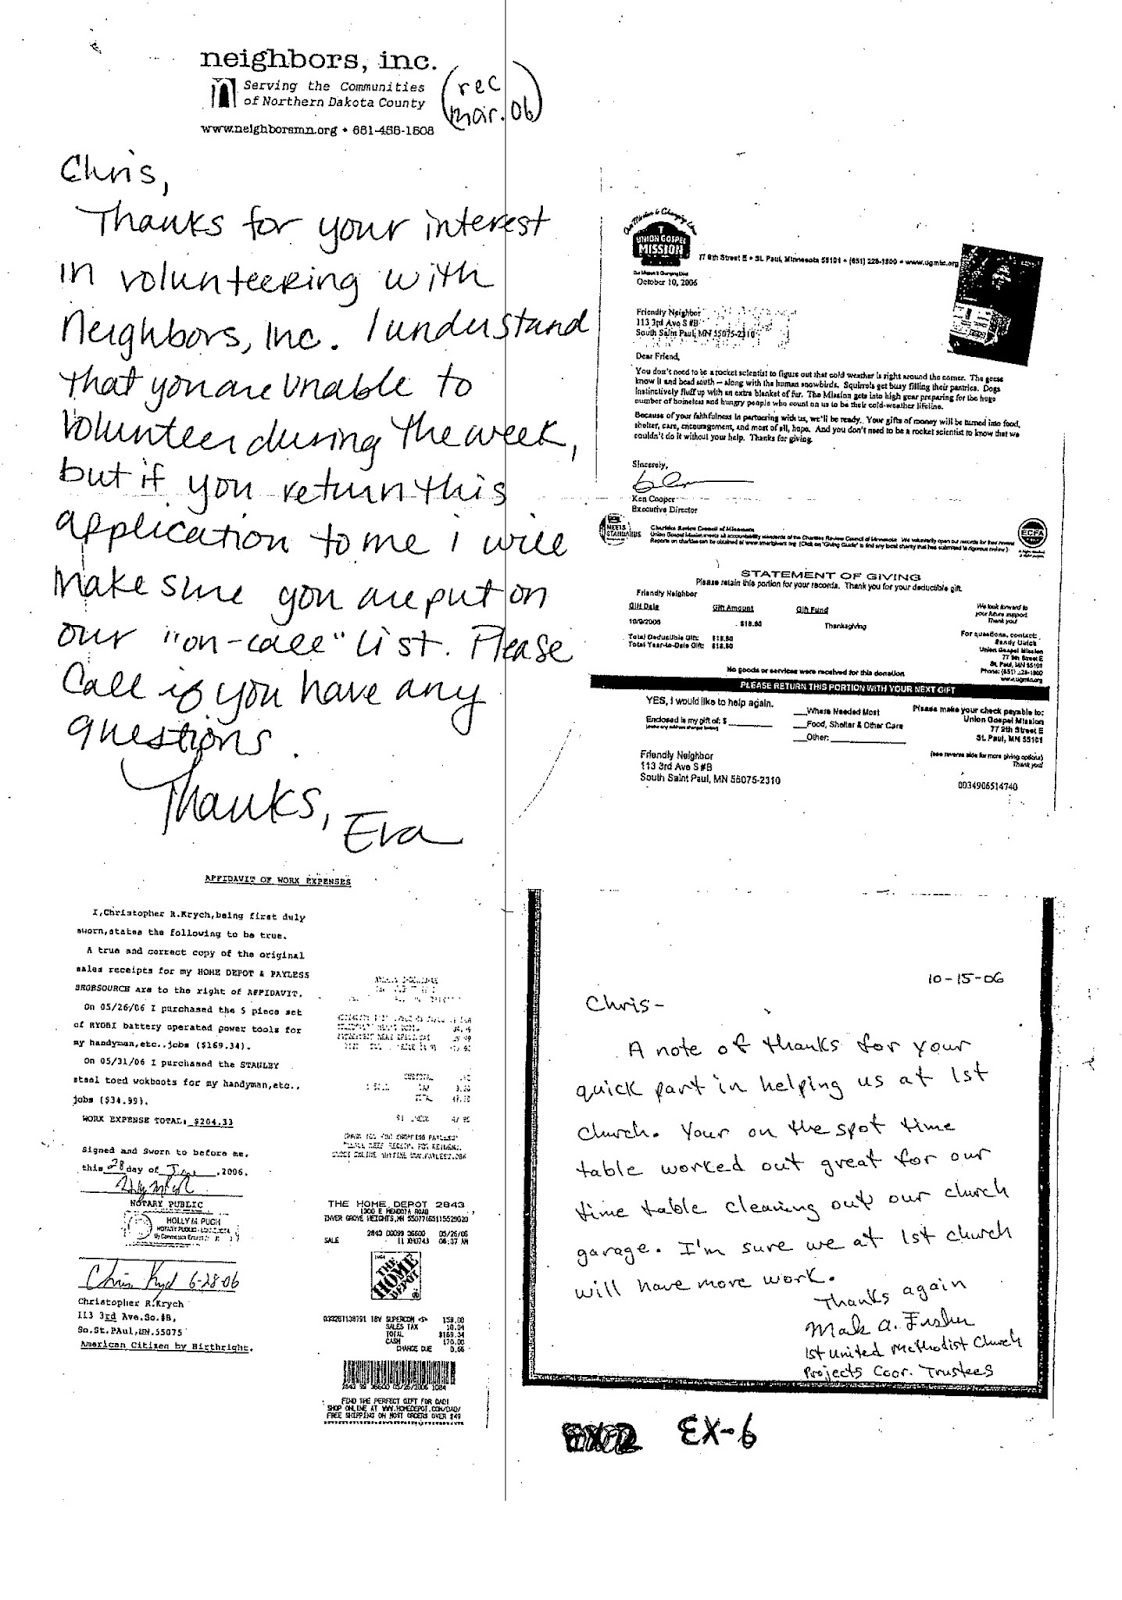 neighbors, inc.
Serving the Communities
of Northern Dakota County
www.neighborsmn.org • 651-455-1508
(rec
mar. 06)
Chris,
Thanks for your interest
in volunteering with
Neighbors, Inc. I understand
that you are unable to
volunteer during the week,
but if you return this
application to me i will
make sure you are put on
our "on-call" list. Please
Call if you have any
questions.
Thanks,
Eva
UNION GOSPEL
MISSION
77 9th Street E • St. Paul, Minnesota 55101 • (651) 228-1800 • www.ugmtc.org
October 10, 2006
Friendly Neighbor
113 3rd Ave S #B
South Saint Paul, MN 55075-2310
Dear Friend,
You don't need to be a rocket scientist to figure out that cold weather is right around the corner. The geese
know it and head south – along with the human snowbirds. Squirrels get busy filling their pantries. Dogs
instinctively fluff up with an extra blanket of fur. The Mission gets into high gear preparing for the huge
number of homeless and hungry people who count on us to be their cold-weather lifeline.
Because of your faithfulness in partnering with us, we'll be ready. Your gifts of money will be turned into food,
shelter, care, encouragement, and most of all, hope. And you don't need to be a rocket scientist to know that we
couldn't do it without your help. Thanks for giving.
Sincerely,
Ken Cooper
Executive Director
MEETS
STANDARDS
Charities Review Council of Minnesota
ECFA
STATEMENT OF GIVING
Please retain this portion for your records. Thank you for your deductible gift.
Friendly Neighbor
Gift Date Gift Amount Gift Fund
10/9/2006 $18.60 Thanksgiving
Total Deductible Gift: $18.60
Total Year-to-Date Gift: $18.60
We look forward to
your future support.
Thank you!
For questions, contact:
Sandy Usick
Union Gospel Mission
77 9th Street E
St. Paul, MN 55101
Phone: (651) 228-1800
www.ugmtc.org
No goods or services were received for this donation
PLEASE RETURN THIS PORTION WITH YOUR NEXT GIFT
YES, I would like to help again.
Enclosed is my gift of: $
Where Needed Most
Food, Shelter & Other Care
Other:
Please make your check payable to:
Union Gospel Mission
77 9th Street E
St. Paul, MN 55101
(see reverse side for more giving options)
Thank you!
Friendly Neighbor
113 3rd Ave S #B
South Saint Paul, MN 55075-2310
0034906514740
AFFIDAVIT OF WORK EXPENSES
I,Christopher R.Krych,being first duly
sworn,states the following to be true.
A true and correct copy of the original
sales receipts for my HOME DEPOT & PAYLESS
SHOESOURCE are to the right of AFFIDAVIT.
On 05/26/06 I purchased the 5 piece set
of RYOBI battery operated power tools for
my handyman,etc.,jobs ($169.34).
On 05/31/06 I purchased the STANLEY
steel toed wokboots for my handyman,etc.,
jobs ($34.99).
WORK EXPENSE TOTAL: $204.33
Signed and Sworn to before me,
this 28 day of June, 2006.
NOTARY PUBLIC
HOLLY M PUCH
Chris Krych 6-28-06
Christopher R.Krych
113 3rd Ave.So.#B,
So.St.PAul,MN.55075
American Citizen by Birthright.
THE HOME DEPOT 2843
1300 E MENDOTA ROAD
INVER GROVE HEIGHTS,MN 55077(651)5529020
2843 00099 36600 05/26/06
SALE 11 XH0743 08:37 AM
THE
HOME
DEPOT
033287138791 18V SUPERCOM <S> 159.00
SALES TAX 10.34
TOTAL $169.34
CASH 170.00
CHANGE DUE 0.66
2843 99 36600 05/26/2006 1084
FIND THE PERFECT GIFT FOR DAD!
SHOP ONLINE AT WWW.HOMEDEPOT.COM/DAD/
FREE SHIPPING ON MOST ORDERS OVER $49
10-15-06
Chris-
A note of thanks for your
quick part in helping us at 1st
church. Your on the spot time
table worked out great for our
time table cleaning out our church
garage. I'm sure we at 1st church
will have more work.
Thanks again
Mark A. Fisher
1st United Methodist Church
Projects Coor. Trustees
EX-6